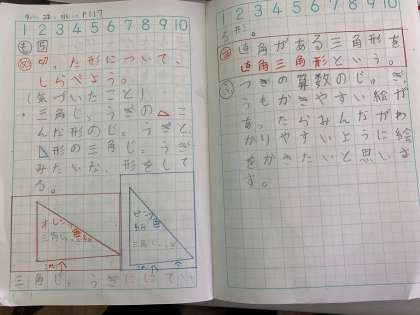 P117
1 2 3 4 5 6 7 8 9 10
切った形について、
しらべよう。
(気づいたこと)
・三角じょうぎの
んだ形のじょうぎと
形の三角じょうぎ
みたいな形をして
る。
オレンジ色
三角じょうぎ
ピンク色
三角じょうぎ
三角じょうぎににてい
1 2 3 4 5 6 7 8 9 10
直角がある三角形を
直角三角形という。
つぎの算数のじゅぎ
うもかきやすい絵が
あったらみんながわ
かりやすいように絵
をかきたいと思いま
す。